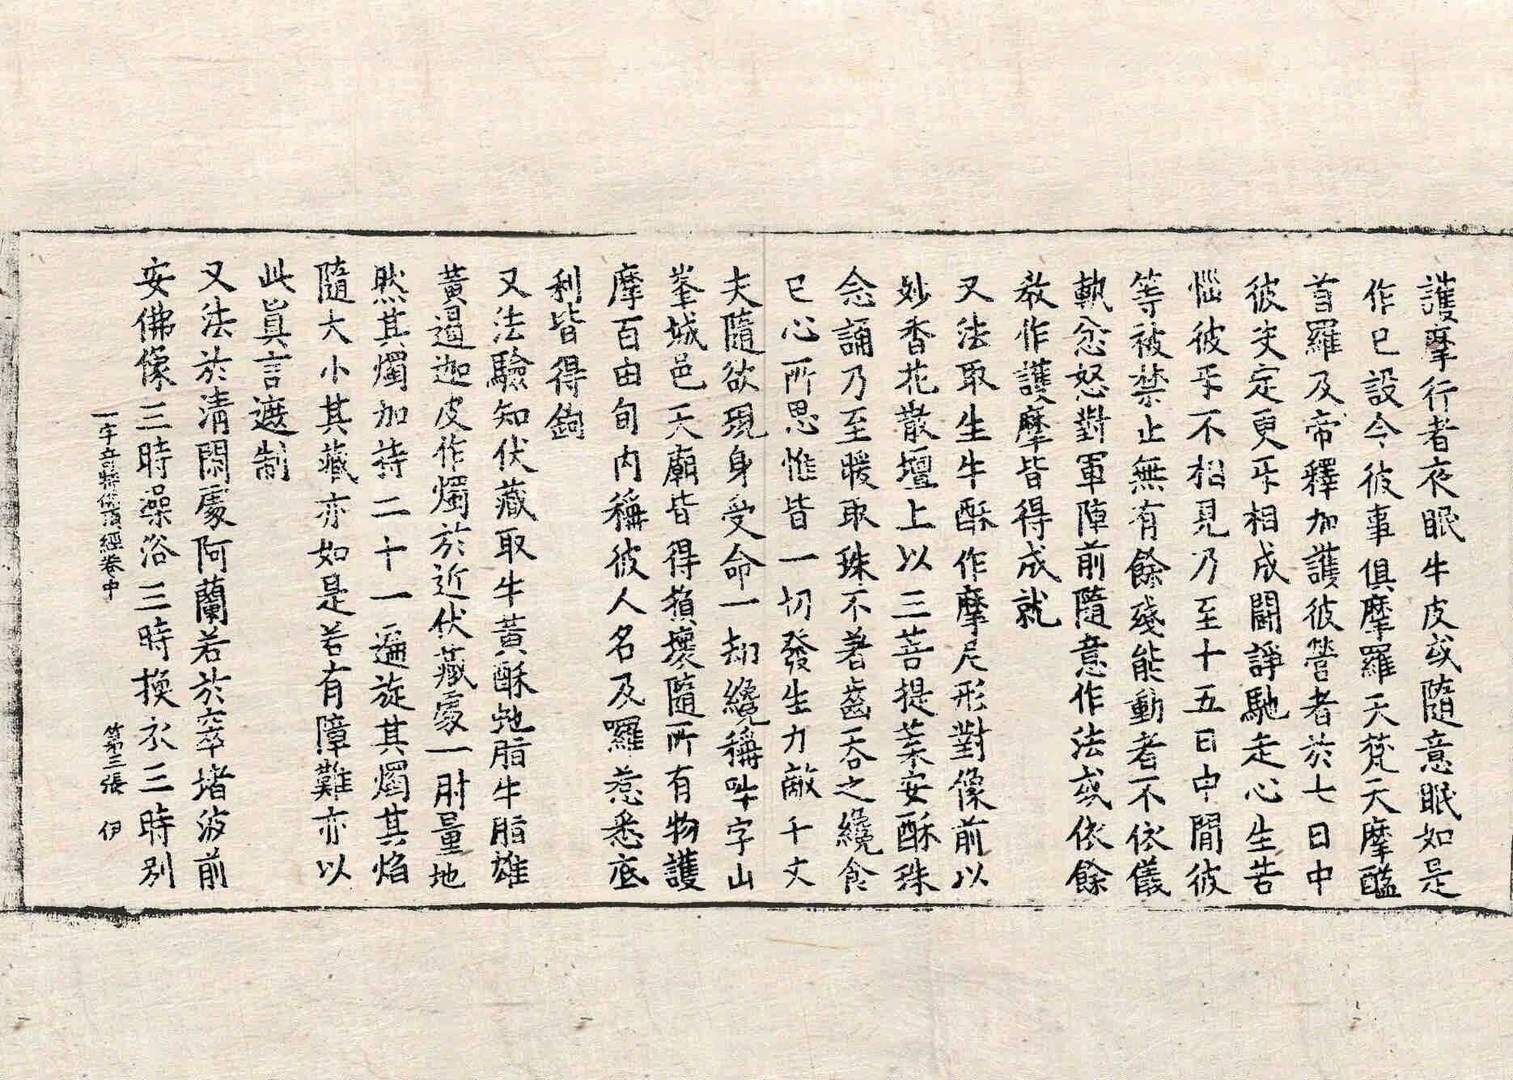 護摩行者夜眠牛皮或隨意眠如是
作已設令彼事俱摩羅天梵天摩醯
首羅及帝釋加護彼營者於七日中
彼突定更互相成鬪諍馳走心生苦
惱彼互不相見乃至十五日中間彼
等被禁止無有餘殘能動者不依儀
軌忿怒對軍陣前隨意作法或依餘
教作護摩皆得成就
又法取生牛酥作摩尼形對像前以
妙香花散壇上以三菩提葉安酥珠
念誦乃至暖取珠不著齒吞之纔食
已心所思惟皆一切發生力敵千丈
夫隨欲現身受命一劫纔稱吽字山
峯城邑天廟皆得損壞隨所有物護
摩百由旬內稱彼人名及囉惹悉底
利皆得鉤
又法驗知伏藏取牛黃酥虵脂牛脂雄
黃遏迦皮作燭於近伏藏處一肘量地
然其燭加持二十一遍旋其燭其焰
隨大小其藏亦如是若有障難亦以
此眞言遮制
又法於清閑處阿蘭若於窣堵波前
安佛像三時澡浴三時換衣三時別
一字奇特佛頂經卷中 第三張 伊